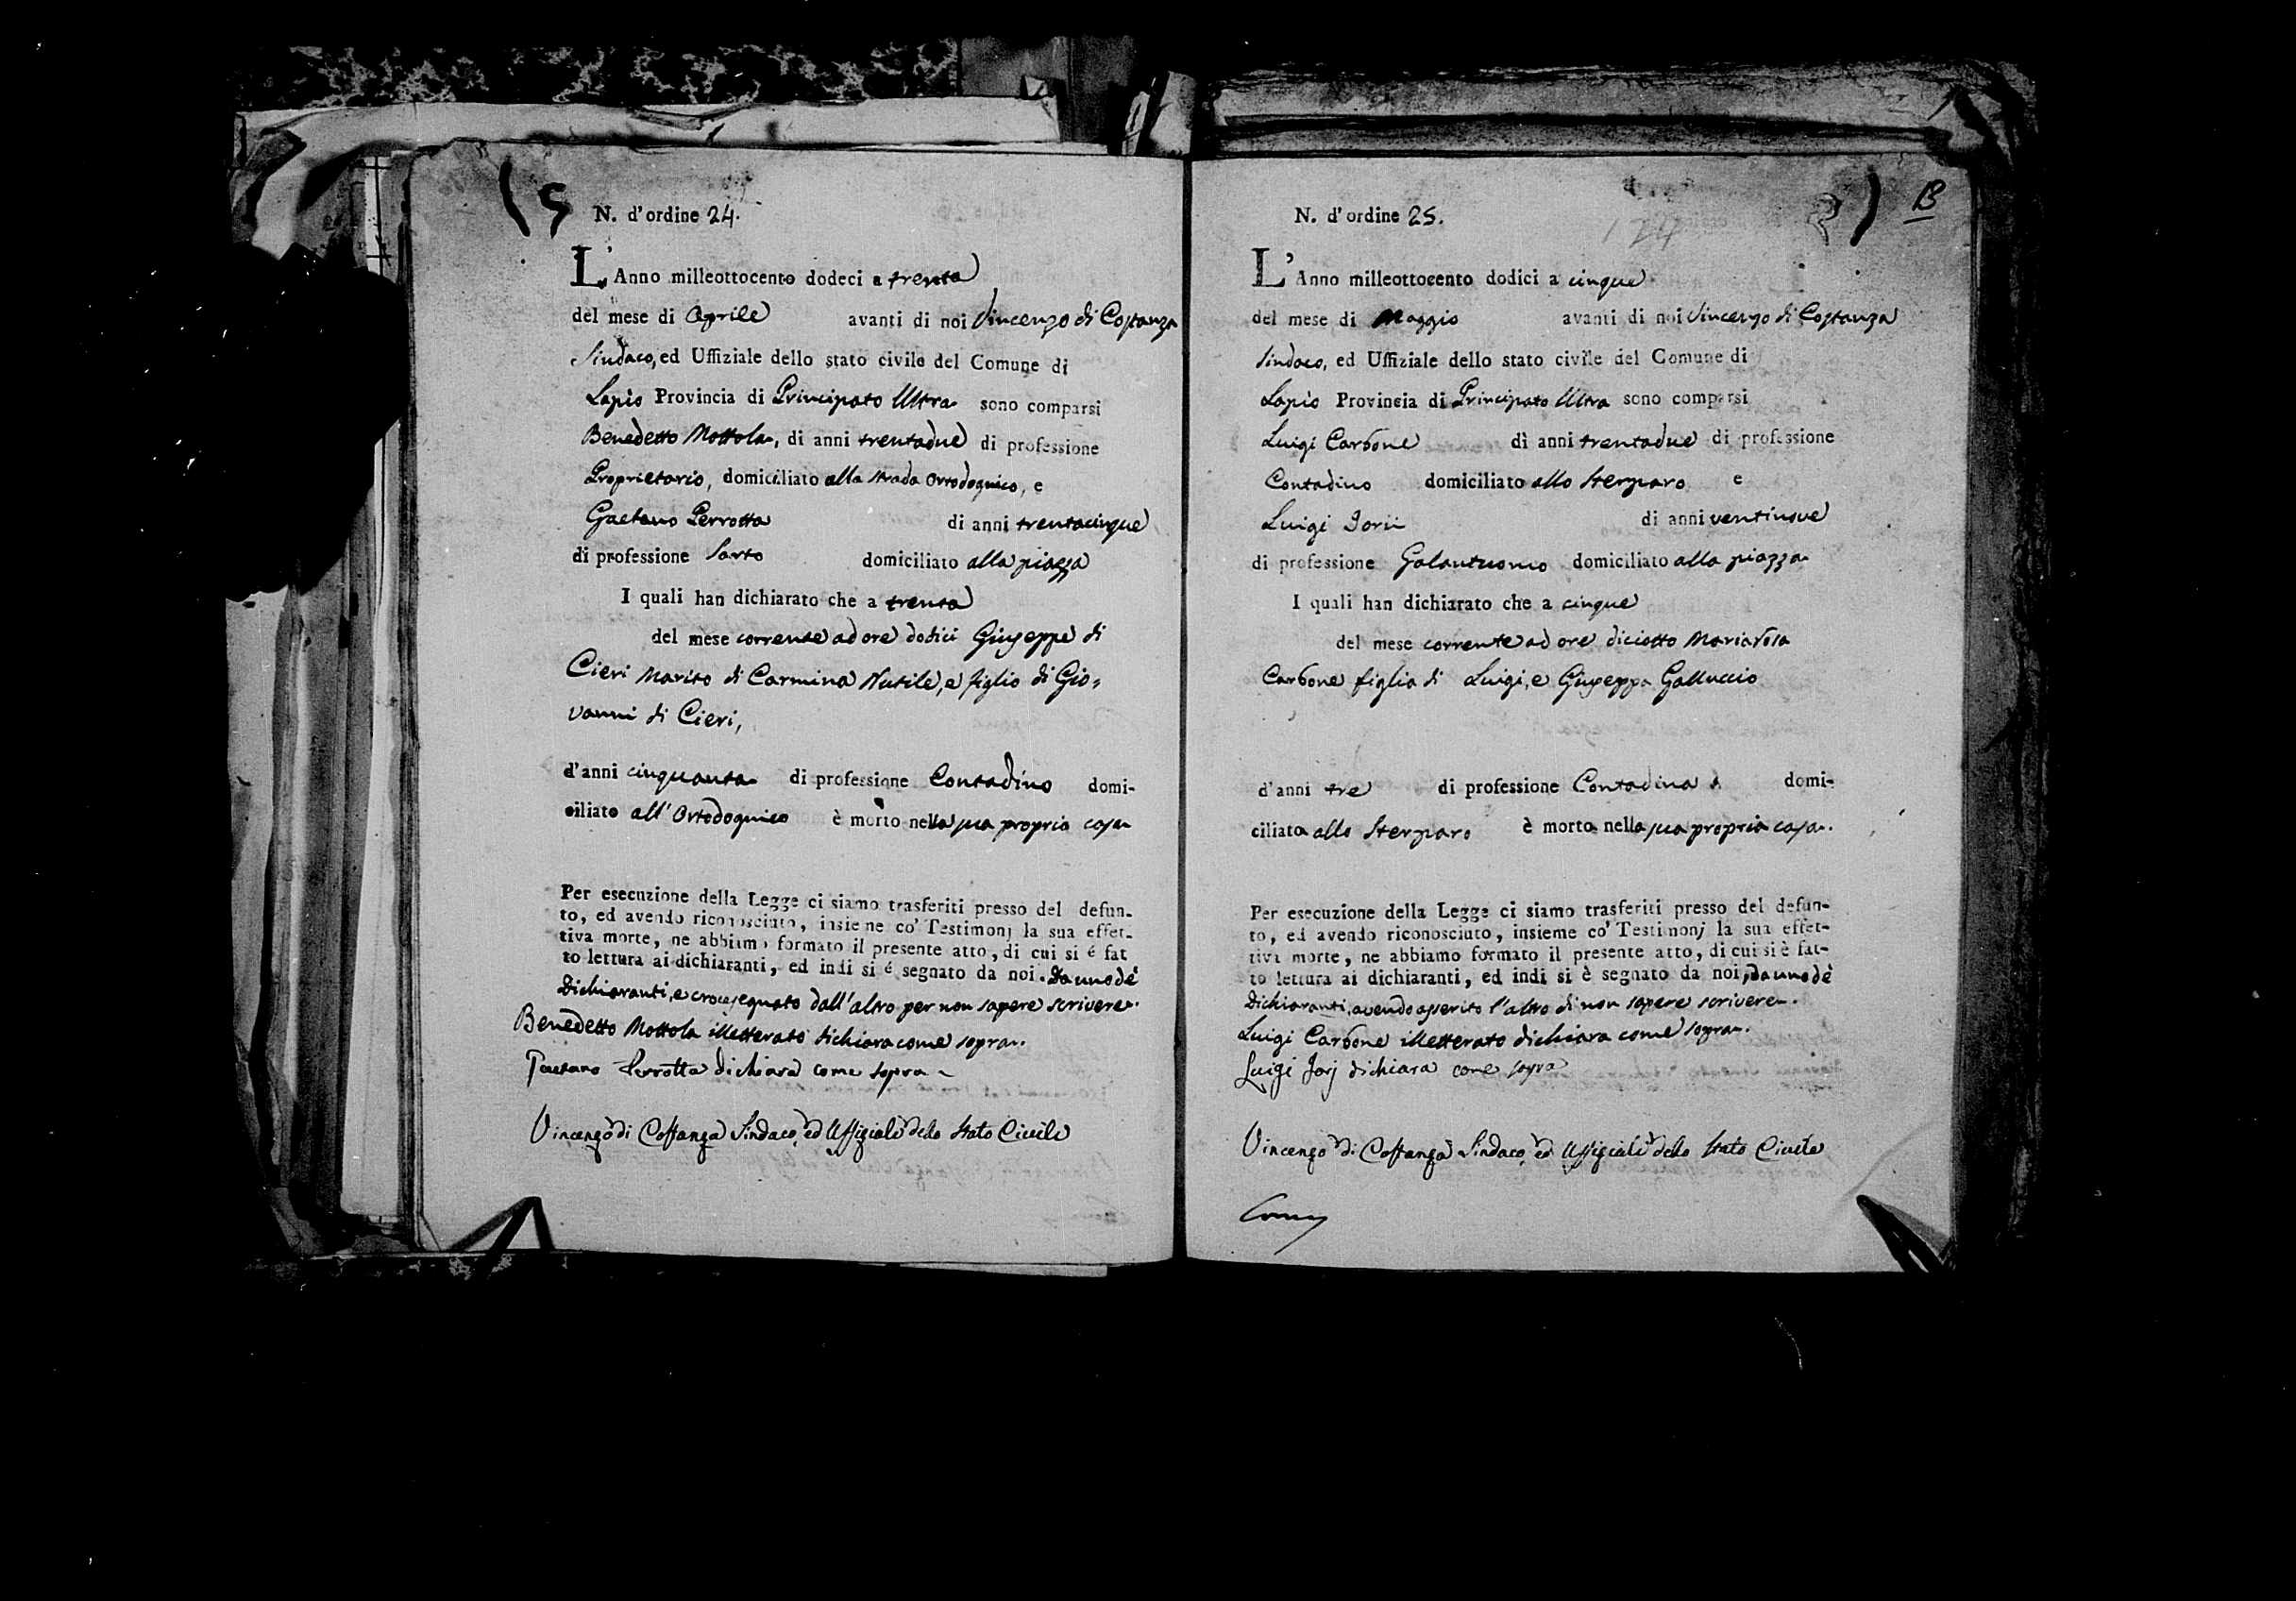 N. d'ordine 24.
L'Anno milleottocento dodeci a trenta
del mese di Aprile avanti di noi Vincenzo di Costanza
Sindaco, ed Uffiziale dello stato civile del Comune di
Lapio Provincia di Principato Ultra sono comparsi
Benedetto Mottola, di anni trentadue di professione
Proprietario, domiciliato alla strada Ortodognico, e
Gaetano Perrotta di anni trentacinque
di professione Sarto domiciliato alla piazza
I quali han dichiarato che a trenta
del mese corrente ad ore dodici Giuseppe di
Cieri Marito di Carmina Nutile, e figlio di Gio,
vanni di Cieri,
d'anni cinquanta di professione Contadino domi-
ciliato all'Ortodognico è morto nella sua propria casa
Per esecuzione della Legge ci siamo trasferiti presso del defun-
to, ed avendo riconosciuto, insieme co' Testimonj la sua effet-
tiva morte, ne abbiamo formato il presente atto, di cui si é fat
to lettura ai dichiaranti, ed indi si é segnato da noi. Da uno dè
Dichiaranti, e crocesegnato dall'altro per non sapere scrivere.
Benedetto Mottola illetterato dichiara come sopra.
Gaetano Perrotta dichiara come sopra
Vincenzo di Costanza Sindaco, ed Uffiziale dello Stato Civile
13
124
N. d'ordine 25.
L'Anno milleottocento dodici a cinque
del mese di Maggio avanti di noi Vincenzo di Costanza
Sindaco, ed Uffiziale dello stato civile del Comune di
Lapio Provincia di Principato Ultra sono comparsi
Luigi Carbone di anni trentadue di professione
Contadino domiciliato allo Sterparo e
Luigi Iorii di anni ventinove
di professione Galantuomo domiciliato alla piazza
I quali han dichiarato che a cinque
del mese corrente ad ore diciotto Mariarosa
Carbone figlia di Luigi, e Giuseppa Galluccio
d'anni tre di professione Contadina domi-
ciliata allo Sterparo è morta nella sua propria casa.
Per esecuzione della Legge ci siamo trasferiti presso del defun-
to, ed avendo riconosciuto, insieme co' Testimonj la sua effet-
tiva morte, ne abbiamo formato il presente atto, di cui si è fat-
to lettura ai dichiaranti, ed indi si è segnato da noi, da uno dè
Dichiaranti, avendo asserito l'altro di non sapere scrivere.
Luigi Carbone illetterato dichiara come sopra.
Luigi Jorj dichiara come sopra
Vincenzo di Costanza Sindaco, ed Uffiziale dello Stato Civile